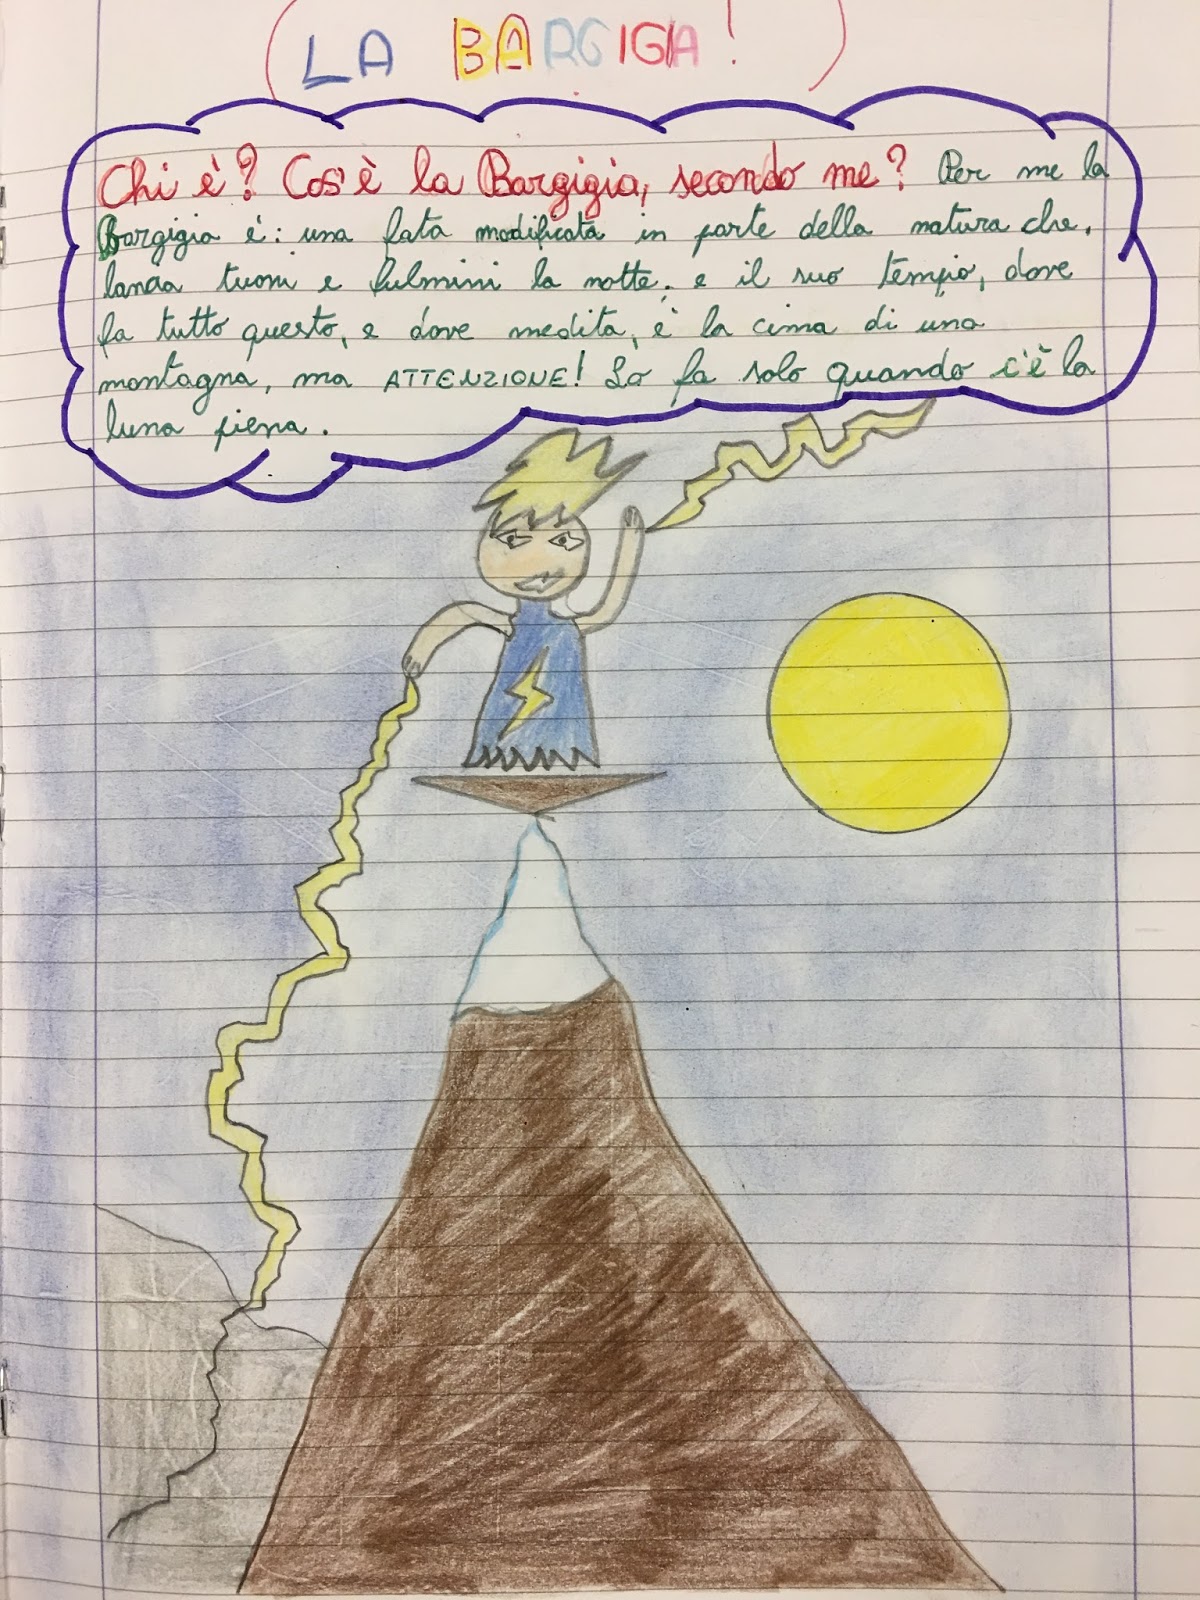 LA BARGIGIA!
Chi è? Cos'è la Bargigia, secondo me? Per me la
Bargigia è: una fata modificata in parte della natura che,
lancia tuoni e fulmini la notte, e il suo tempio, dove
fa tutto questo, e dove medita, è la cima di una
montagna, ma ATTENZIONE! Lo fa solo quando c'è la
luna piena.